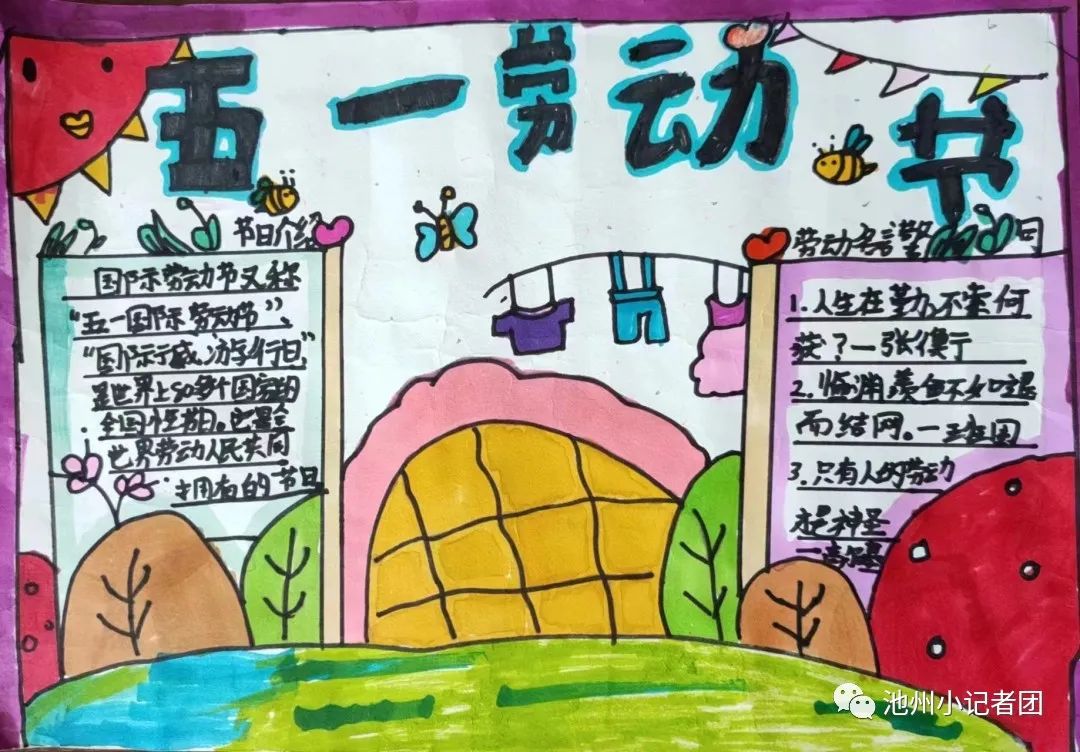 五一劳动节
节日介绍
国际劳动节又称
“五一国际劳动节”、
“国际示威游行日”
是世界上80多个国家的
全国性节日。它是全
世界劳动人民共同
拥有的节日
劳动名言警
1.人生在勤,不索何
获?一张衡
2.临渊羡鱼不如退
而结网。一班固
3.只有人的劳动
才是神圣
一高尔基
池州小记者团